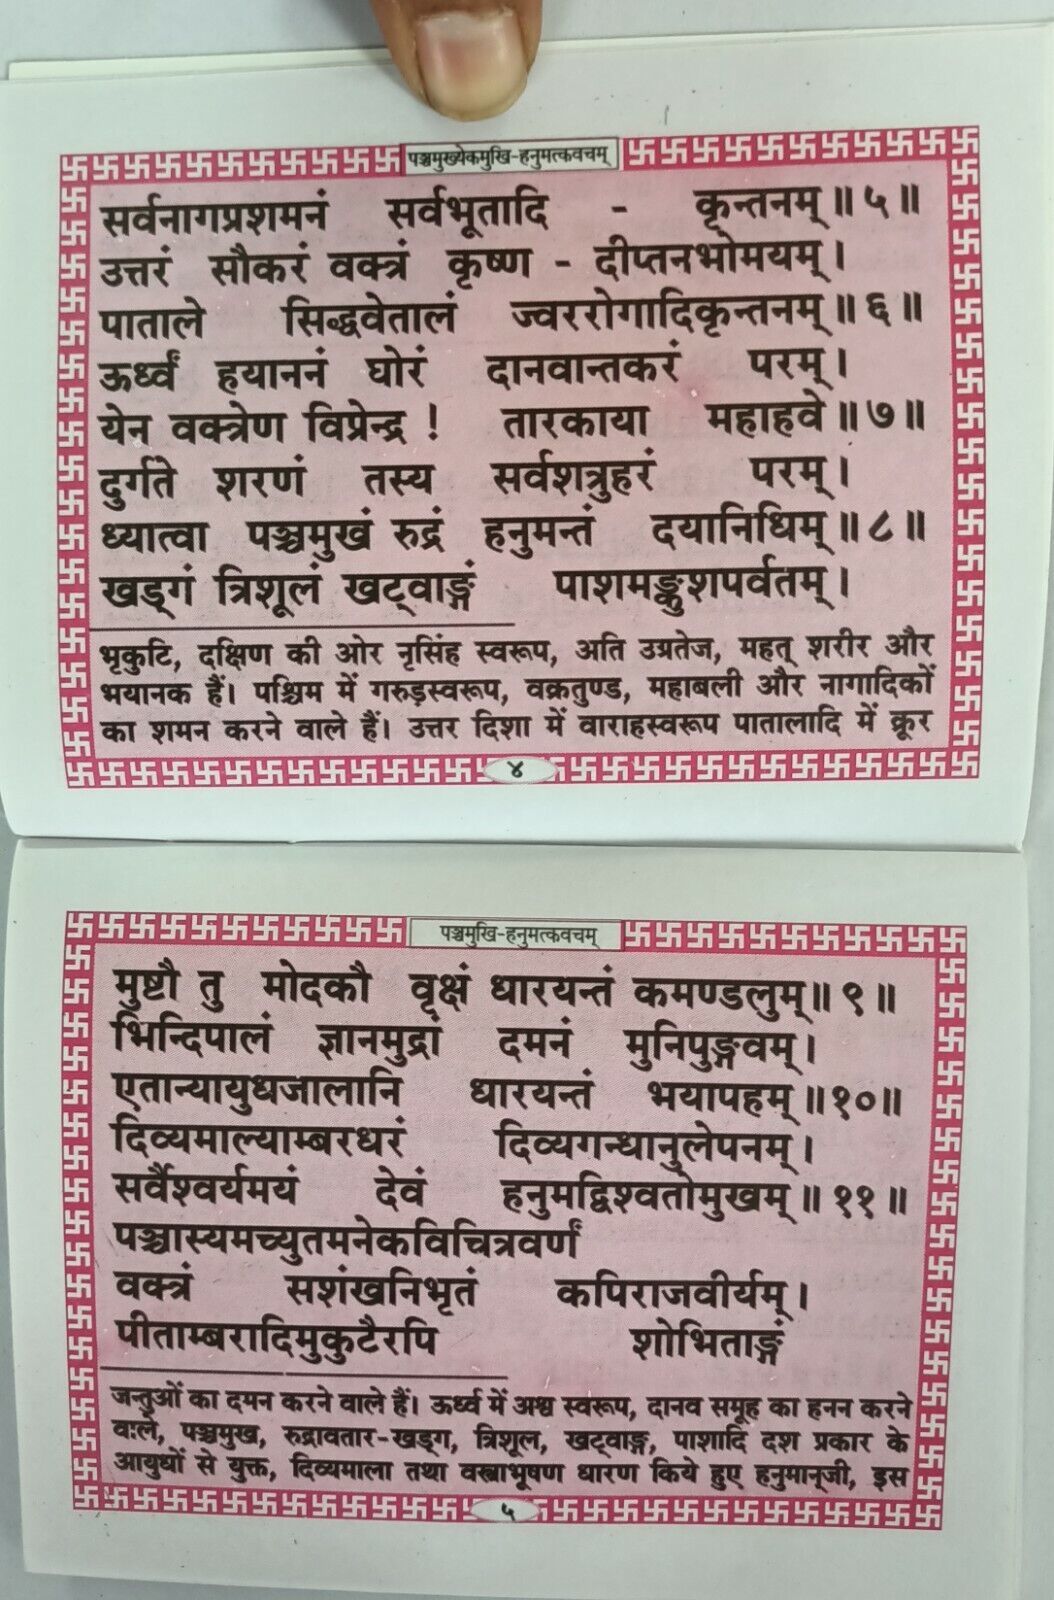 पञ्चमुख्येकमुखि-हनुमत्कवचम्
सर्वनागप्रशमनं सर्वभूतादि - कृन्तनम्॥ ५॥
उत्तरं सौकरं वक्त्रं कृष्ण - दीप्तनभोमयम्।
पाताले सिद्धवेतालं ज्वररोगादिकृन्तनम्॥ ६॥
ऊर्ध्वं हयाननं घोरं दानवान्तकरं परम्।
येन वक्त्रेण विप्रेन्द्र ! तारकाया महाहवे॥ ७॥
दुर्गते शरणं तस्य सर्वशत्रुहरं परम्।
ध्यात्वा पञ्चमुखं रुद्रं हनुमन्तं दयानिधिम्॥ ८॥
खड्गं त्रिशूलं खट्वाङ्गं पाशमङ्कुशपर्वतम्।
भृकुटि, दक्षिण की ओर नृसिंह स्वरूप, अति उग्रतेज, महत् शरीर और
भयानक हैं। पश्चिम में गरुड़स्वरूप, वक्रतुण्ड, महाबली और नागादिकों
का शमन करने वाले हैं। उत्तर दिशा में वाराहस्वरूप पातालादि में क्रूर
४
पञ्चमुखि-हनुमत्कवचम्
मुष्टौ तु मोदकौ वृक्षं धारयन्तं कमण्डलुम्॥ ९॥
भिन्दिपालं ज्ञानमुद्रां दमनं मुनिपुङ्गवम्।
एतान्यायुधजालानि धारयन्तं भयापहम्॥ १०॥
दिव्यमाल्याम्बरधरं दिव्यगन्धानुलेपनम्।
सर्वैश्वर्यमयं देवं हनुमद्विश्वतोमुखम्॥ ११॥
पञ्चास्यमच्युतमनेकविचित्रवर्णं
वक्त्रं सशंखनिभृतं कपिराजवीर्यम्।
पीताम्बरादिमुकुटैरपि शोभिताङ्गं
जन्तुओं का दमन करने वाले हैं। ऊर्ध्व में अश्व स्वरूप, दानव समूह का हनन करने
वाले, पञ्चमुख, रुद्रावतार-खड्ग, त्रिशूल, खट्वाङ्ग, पाशादि दश प्रकार के
आयुधों से युक्त, दिव्यमाला तथा वस्त्राभूषण धारण किये हुए हनुमान्‌जी, इस
५